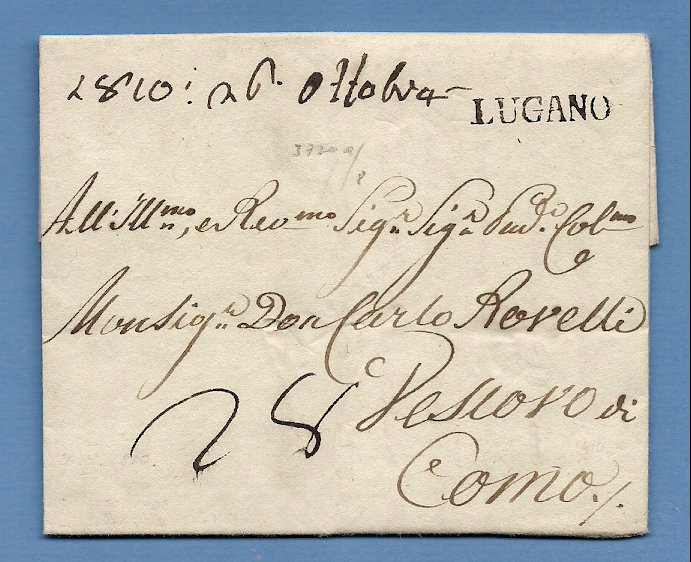 1810: 26. Ottobre
LUGANO
All'Ill:mo, e Rev.mo Sigr. Sigr. Pad.e Col.mo
Monsigr. Don Carlo Rovelli
Vescovo di
Como./.
28